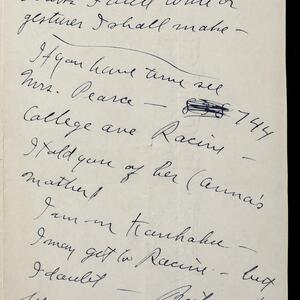 gestures I shall make –
If you have time see
Mrs. Pearce – 744
College ave Racine –
I told you of her (Anna's
mother)
I am in
I may get to Racine – but
I doubt –